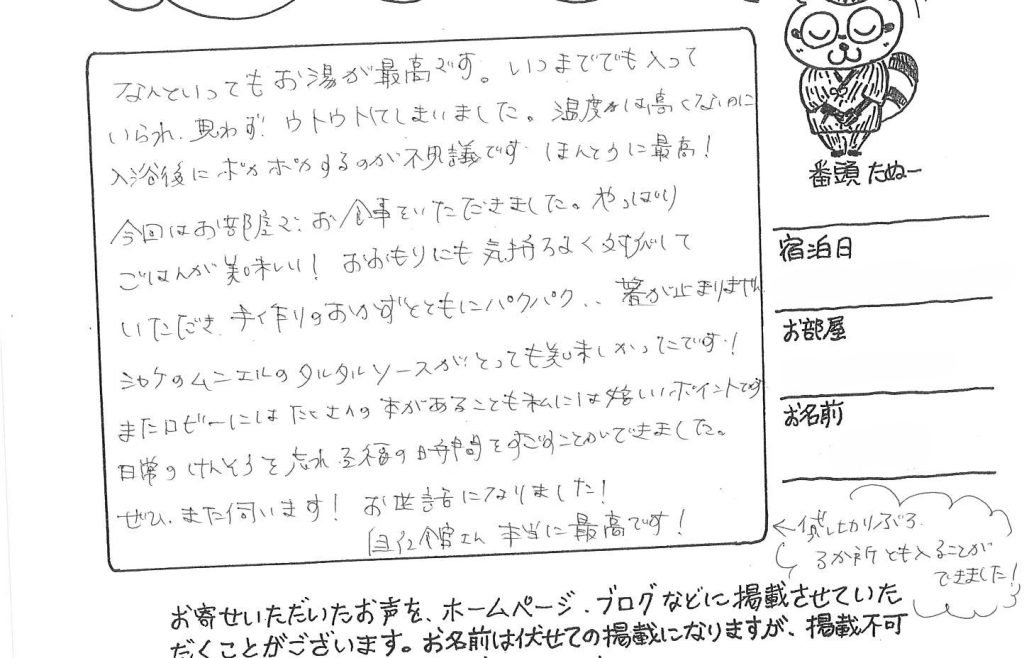 なんといってもお湯が最高です。いつまででも入って
いられ、思わず ウトウトしてしまいました。温度がは高くないのに
入浴後に ポカポカするのが不思議です ほんとうに最高！
今回はお部屋で、お食事をいただきました。やっぱり
ごはんが美味しい！ おおもりにも気持ちよく対応して
いただき 手作りのおかずとともにパクパク、、箸が止まりません
シャケのムニエルのタルタルソースがとっても美味しかったです！
またロビーにはたくさんの本があることも私には嬉しいポイントです
日常のけんそうを忘れ 至福の時間をすごすことができました。
ぜひ、また伺います！ お世話になりました！
自在館さん 本当に最高です！
番頭 たぬー
宿泊日
お部屋
お名前
←貸しきりぶろ
3か所とも入ることが
できました！
お寄せいただいたお声を、ホームページ・ブログなどに掲載させていた
だくことがございます。お名前は伏せての掲載になりますが、掲載不可